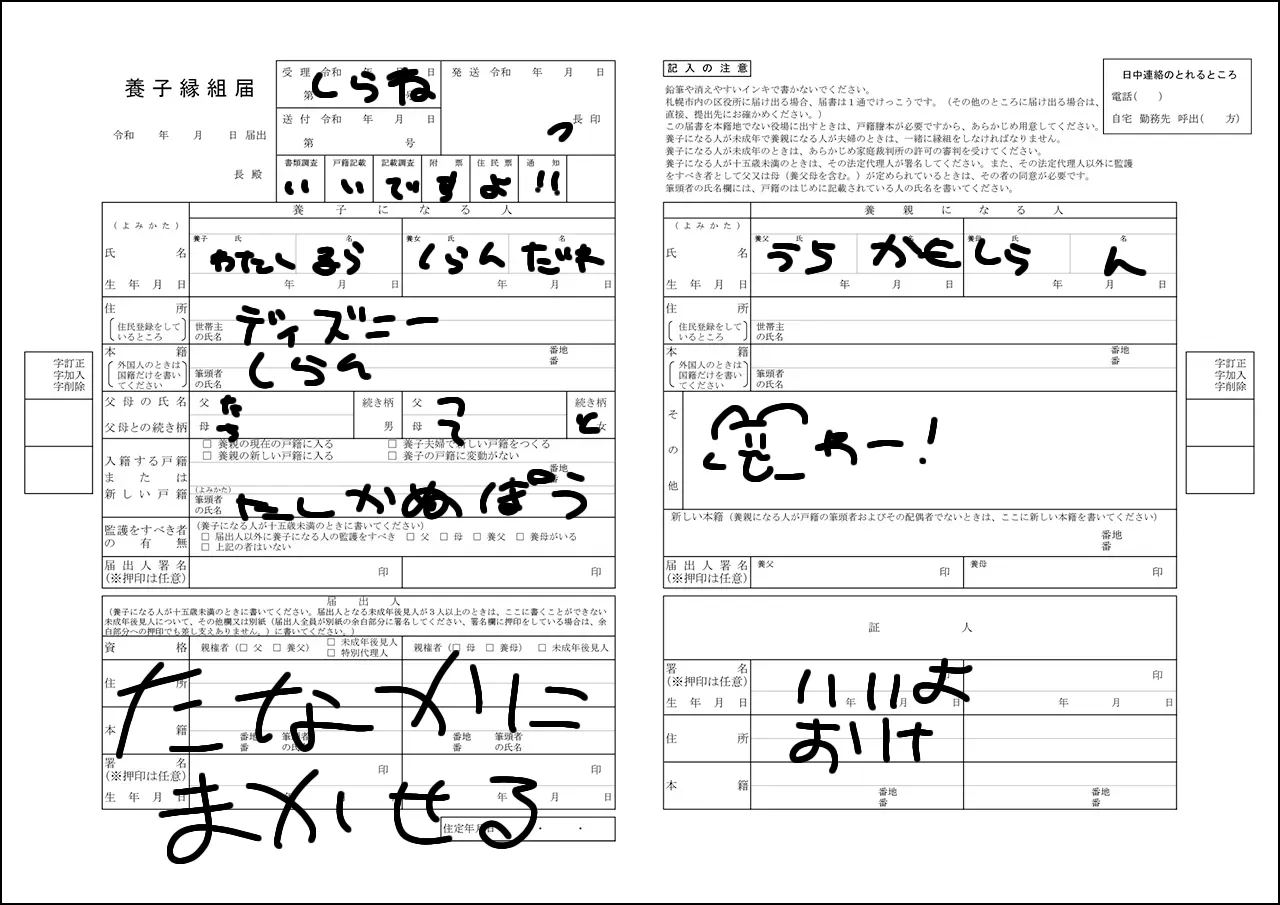 養子縁組届
令和 年 月 日 届出
長 殿
受理 令和 年 月 日
第 号
しらね
発送 令和 年 月 日
送付 令和 年 月 日
第 号
長印
っ
書類調査 戸籍記載 記載調査 附票 住民票 通知
い い で す よ !!
養子になる人
(よみかた)
氏名
養子 氏 名 養女 氏 名
わたし まら しらん だれ
生年月日 年 月 日 年 月 日
住所
(住民登録をしているところ)
世帯主の氏名
ディズニー
本籍
番地
番
(外国人のときは国籍だけを書いてください)
筆頭者の氏名
しらん
父母の氏名
父母との続き柄
父 た 続き柄 父 っ 続き柄
母 う 男 母 て と 女
入籍する戸籍または新しい戸籍
□ 養親の現在の戸籍に入る □ 養子夫婦で新しい戸籍をつくる
□ 養親の新しい戸籍に入る □ 養子の戸籍に変動がない
番地
番
(よみかた)
筆頭者の氏名
たしかめぱう
監護をすべき者の有無
(養子になる人が十五歳未満のときに書いてください)
□ 届出人以外に養子になる人の監護をすべき □ 父 □ 母 □ 養父 □ 養母がいる
□ 上記の者はいない
届出人署名
(※押印は任意)
印 印
届出人
(養子になる人が十五歳未満のときに書いてください。届出人となる未成年後見人が3人以上のときは、ここに書くことができない
未成年後見人について、その他欄又は別紙(届出人全員が別紙の余白部分に署名してください、署名欄に押印をしている場合は、余
白部分への押印でも差し支えありません。)に書いてください。)
資格 親権者(□ 父 □ 養父) □ 未成年後見人 □ 特別代理人 親権者(□ 母 □ 養母) □ 未成年後見人
住所
たなかに
本籍
番地 番 筆頭者の氏名 番地 番 筆頭者の氏名
署名
(※押印は任意)
印 印
まかせる
生年月日 年 月 日
住定年月日 ・ ・
字訂正
字加入
字削除
記入の注意
鉛筆や消えやすいインキで書かないでください。
札幌市内の区役所に届け出る場合、届書は1通でけっこうです。(その他のところに届け出る場合は、
直接、提出先にお確かめください。)
この届書を本籍地でない役場に出すときは、戸籍謄本が必要ですから、あらかじめ用意してください。
養子になる人が未成年で養親になる人が夫婦のときは、一緒に縁組をしなければなりません。
養子になる人が未成年のときは、あらかじめ家庭裁判所の許可の審判を受けてください。
養子になる人が十五歳未満のときは、その法定代理人が署名してください。また、その法定代理人以外に監護
をすべき者として父又は母(養父母を含む。)が定められているときは、その者の同意が必要です。
筆頭者の氏名欄には、戸籍のはじめに記載されている人の氏名を書いてください。
日中連絡のとれるところ
電話( )
自宅 勤務先 呼出( 方)
養親になる人
(よみかた)
氏名
養父 氏 名 養母 氏 名
うち かも しら ん
生年月日 年 月 日 年 月 日
住所
(住民登録をしているところ)
世帯主の氏名
本籍
番地
番
(外国人のときは国籍だけを書いてください)
筆頭者の氏名
その他
やー!
新しい本籍(養親になる人が戸籍の筆頭者およびその配偶者でないときは、ここに新しい本籍を書いてください)
番地
番
届出人署名
(※押印は任意)
養父 印 養母 印
証人
署名
(※押印は任意)
印
いいよ
生年月日 年 月 日 年 月 日
住所
おけ
本籍
番地 番地
番 番
字訂正
字加入
字削除